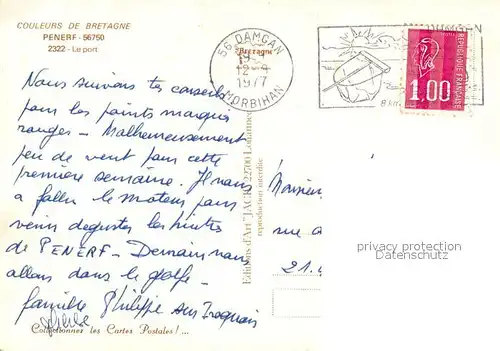 COULEURS DE BRETAGNE
PENERF - 56750
2322 - Le port
Bretagne
56 DAMGAN
19
12 - 9
1977
MORBIHAN
RÉPUBLIQUE FRANÇAISE
1,00
Nous suivons tes conseils
pour les points marqués
rouges - Malheureusement
peu de vent pour cette
première semaine. Il nous
a fallu le moteur pour
venir deguster les huitres
de PENERF - Demain nous
allons dans le golfe -
famille Philippe sur Iroquois
Editions d'Art "JACK" 22700 Louannec
reproduction interdite
Monsieur
rue
21.
privacy protection
Datenschutz
Collectionnez les Cartes Postales !...